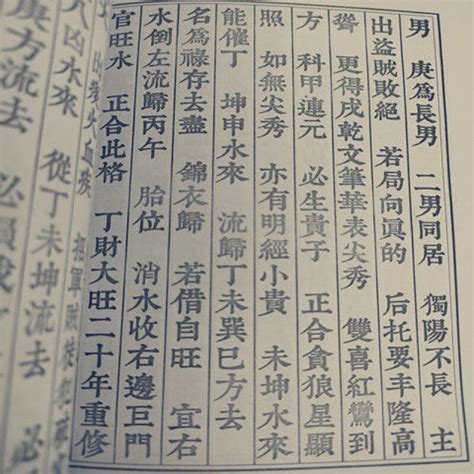 男 庚為長男 二男同居 獨陽不長 主
出盜賊敗絕 若局向眞的 后托要丰隆高
聳 更得戌乾文筆華表尖秀 雙喜紅鸞到
方 科甲連元 必生貴子 正合貪狼星顯
照 如無尖秀 亦有明經小貴 未坤水來
能催丁 坤申水來 流歸丁未巽巳方去
名為祿存去盡 錦衣歸 若借自旺 宜右
水倒左流歸丙午 胎位 消水收右邊巨門
官旺水 正合此格 丁財大旺二十年重修
凶水來 從丁未坤流去 必
庚方流去 必